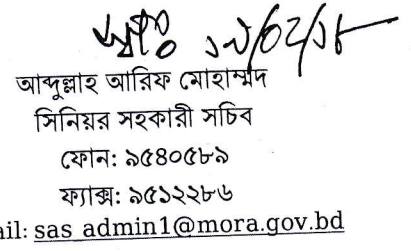 আব্দুল্লাহ আরিফ মোহাম্মদ
সিনিয়র সহকারী সচিব
ফোন: ৯৫৪০৫৮৯
ফ্যাক্স: ৯৫১২২৮৬
ail: sas_admin1@mora.gov.bd